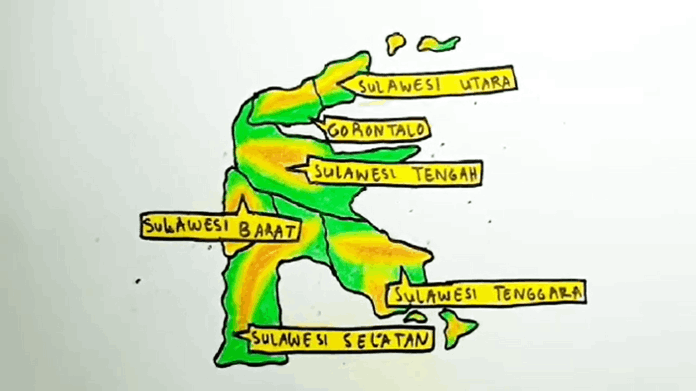 SULAWESI UTARA
GORONTALO
SULAWESI TENGAH
SULAWESI BARAT
SULAWESI TENGGARA
SULAWESI SELATAN